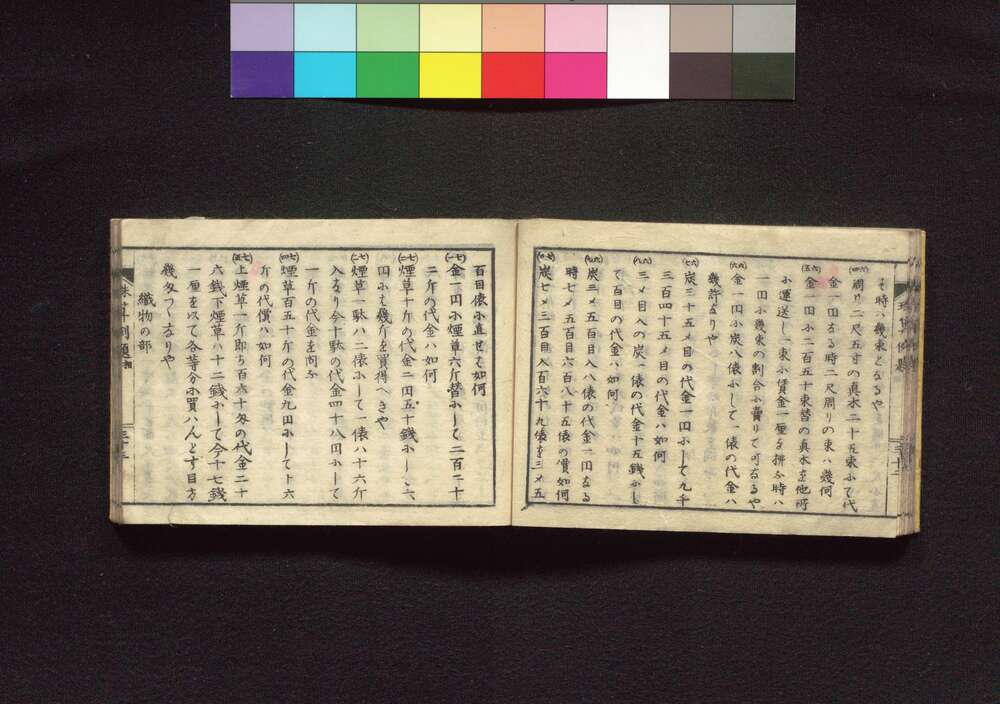 その時ハ幾束となるや
(六四)周リ二尺五寸の真木二十五束ふて代
金一円なる時二尺周りの束ハ幾何
(六五)金一円ふ二百五十束替の真木を他所
ふ運送し一束ふ賃金一厘を拂ふ時ハ
一円ふ幾束の割合ふ賣りて可なるや
(六六)金一円ふ炭八俵ふして一俵の代金ハ
幾許なりや
(六七)炭三十五〆目の代金一円ふして九千
三百四十五〆目の代金ハ如何
(六八)三〆目入の炭一俵の代金十五銭ふし
て百目の代金ハ如何
(六九)炭三〆五百目入八俵の代金一円なる
時七〆五百目六百八十五俵の價如何
(七十)炭七〆三百目入百六十九俵を三〆五
百目俵ふ直せを如何
(七一)金一円ふ煙草六斤替ふして二百二十
二斤の代金ハ如何
(七二)煙草十斤の代金二円五十銭ふして六
円ふも幾斤を買得へきや
(七三)煙草一駄ハ二俵ふして一俵ハ十六斤
入なり今十駄の代金四十八円ふして
一斤の代金を問ふ
(七四)煙草百五十斤の代金九円ふして卜六
斤の代價ハ如何
(七五)上煙草一斤即ち百六十匁の代金二十
六銭下煙草ハ十二銭ふして今十七銭
一厘を以て各等分ふ買ハんとす目方
幾匁つゝなりや
織物の部
珠算例題
三十二
珠算例題
三十三